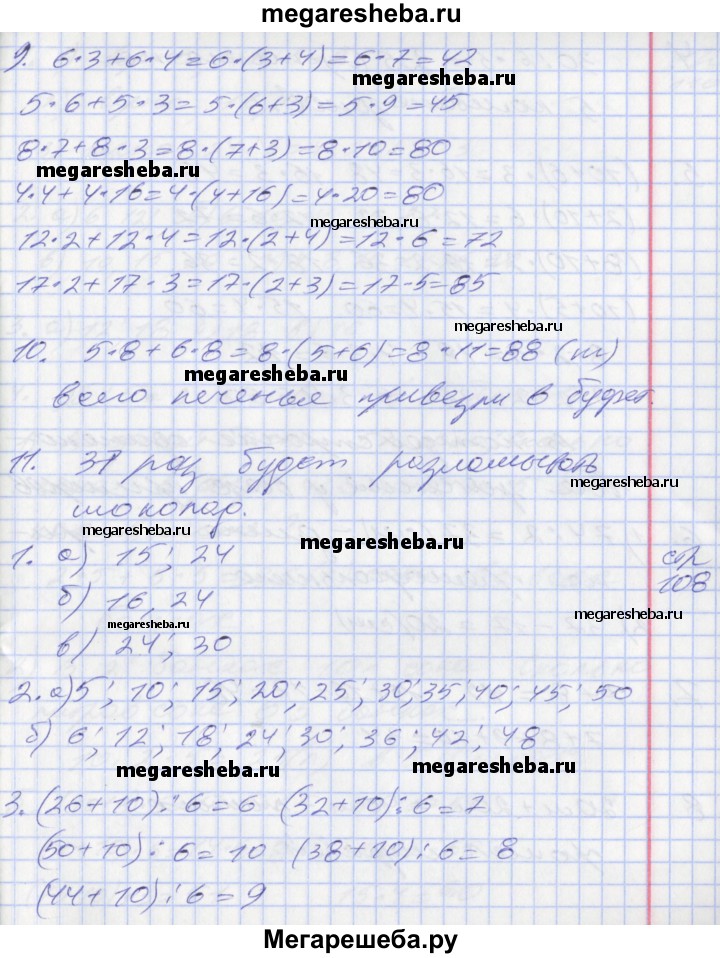 megaresheba.ru
9. 6·3+6·4=6·(3+4)=6·7=42
megaresheba.ru
5·6+5·3=5·(6+3)=5·9=45
8·7+8·3=8·(7+3)=8·10=80
megaresheba.ru
4·4+4·16=4·(4+16)=4·20=80
megaresheba.ru
12·2+12·4=12·(2+4)=12·6=72
17·2+17·3=17·(2+3)=17·5=85
megaresheba.ru
10. 5·8+6·8=8·(5+6)=8·11=88 (п)
megaresheba.ru
всего печенья привезли в буфет.
11. 31 раз будет разламывать
megaresheba.ru
шоколад.
megaresheba.ru
megaresheba.ru
1. а) 15; 24
стр
108
б) 16, 24
megaresheba.ru
megaresheba.ru
в) 24; 30
2. а) 5; 10; 15; 20; 25; 30; 35; 40; 45; 50
б) 6; 12; 18; 24; 30; 36; 42; 48
megaresheba.ru
megaresheba.ru
3. (26+10):6=6 (32+10):6=7
(50+10):6=10 (38+10):6=8
(44+10):6=9
megaresheba.ru
Мегарешеба.ру